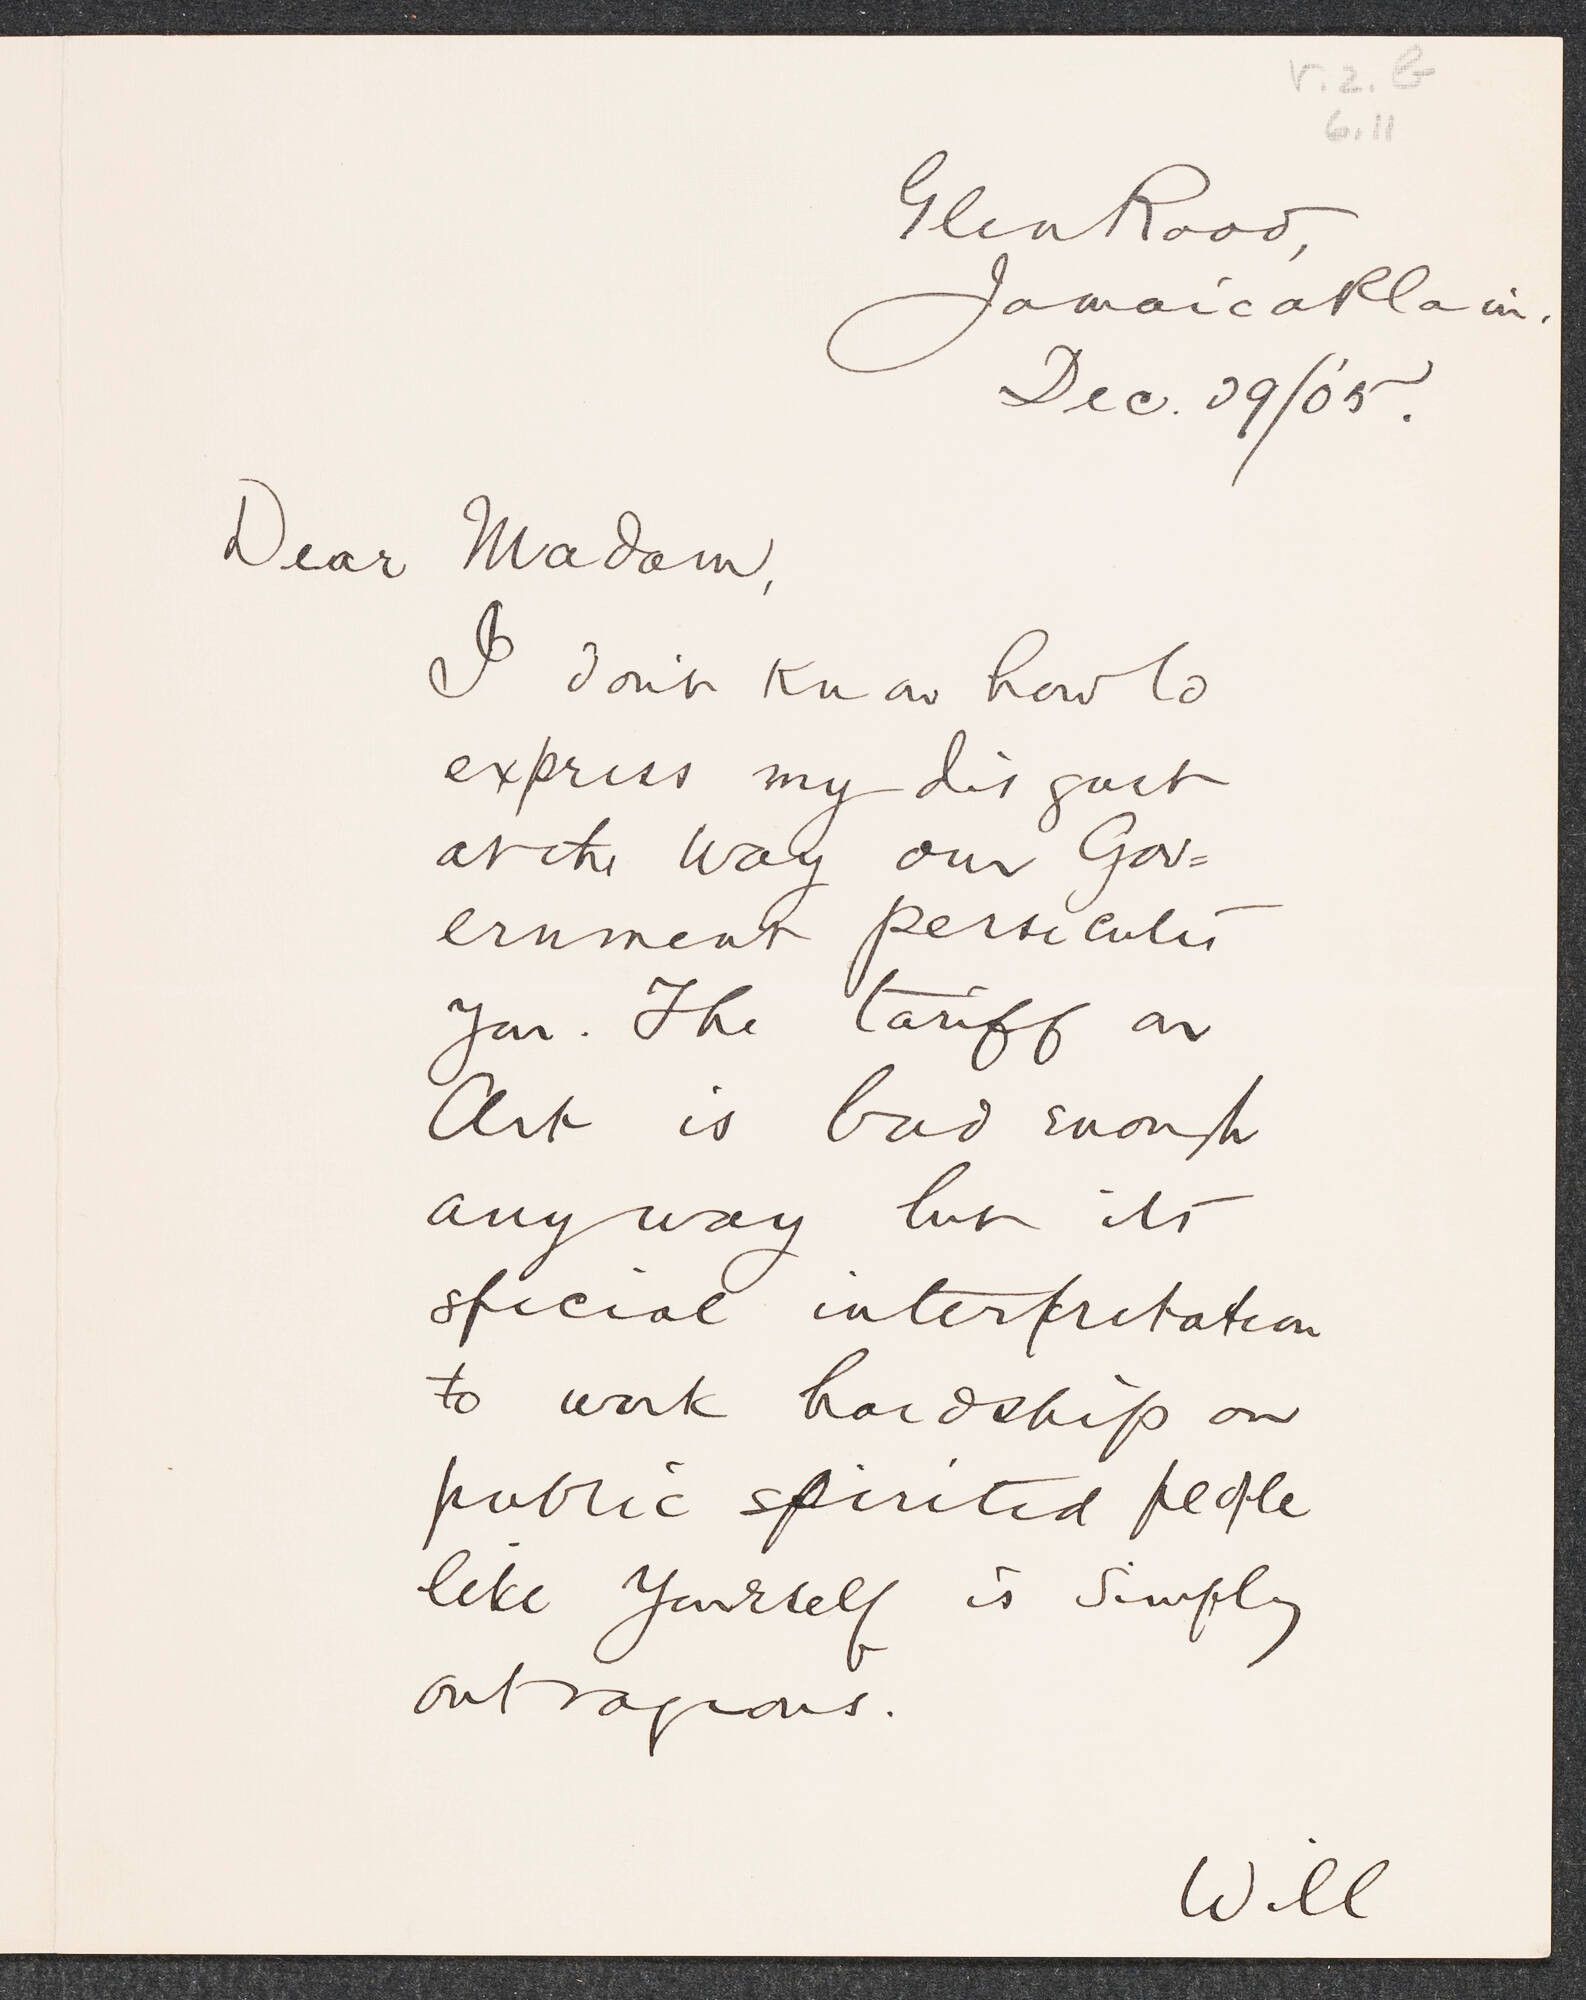 v. 2. B
6.11
Glen Road,
Jamaica Plain.
Dec. 29/05.
Dear Madam,
I don't know how to
express my disgust
at the way our Gov=
ernment persecutes
you. The tariff on
Art is bad enough
anyway but its
special interpretation
to work hardship on
public spirited people
like yourself is simply
outrageous.
Will